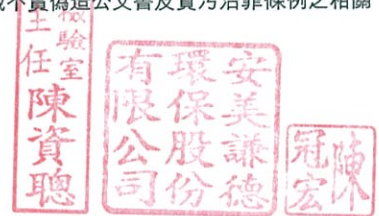 不實偽造公文書及貪污治罪條例之相關
檢驗室
主任陳資聰
安美謙德
環保股份
有限公司
陳
冠宏